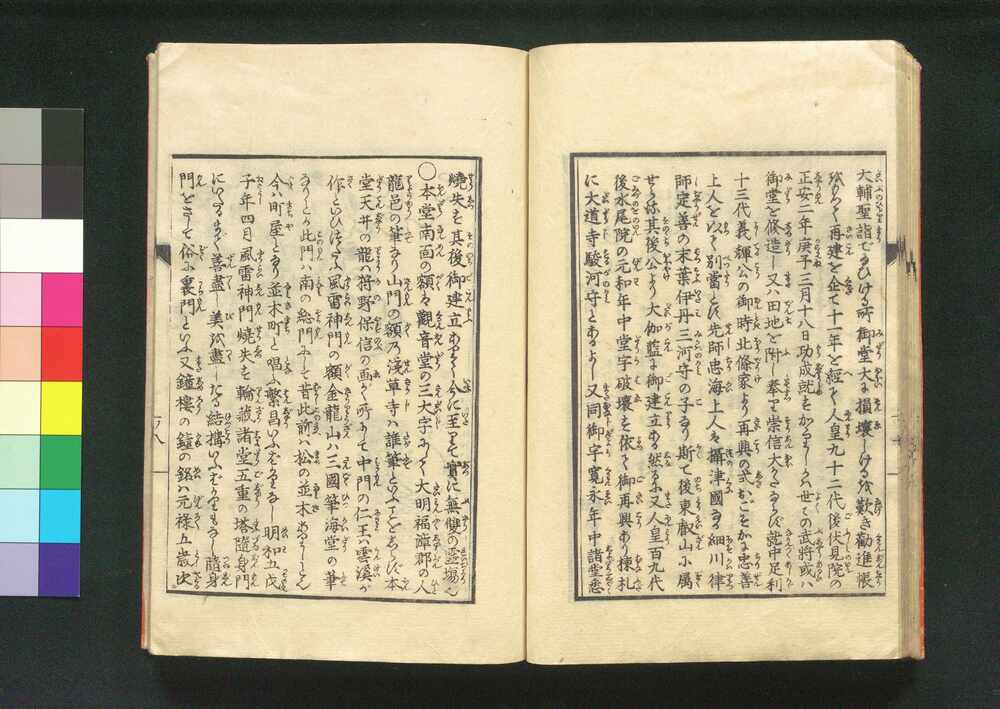 大輔聖詣でありける所御堂大に損壊しけるを歎き勧進帳
をひらく再建を企て十一年を經て人皇九十二代後伏見院の
正安二年庚子三月十八日功成就を
御堂を修造し又ハ田地を附し崇信大かたならず就中足利
十三代義輝公の御時北條家より再興の式おごそかに忠善
上人を以て別當とす先師忠海上人ハ攝津國なる細川律
師定善の末葉伊丹三河守の子なり斯て後東叡山小属
せられ其後公より大伽藍に御建立ある然るに又人皇百九代
後水尾院の元和年中堂宇破壊を依て御再興あり棟札
に大道寺駿河守とあるよし又同御宇寛永年中諸堂悉
燒失を其後御建立ありて今に至りて實に無雙の霊場也
○本堂南面の額は觀音堂の三大字にて大明福漳郡の人
龍邑の筆なり山門の額乃淺草寺ハ誰筆といふことをしらず本
堂天井の龍ハ狩野保信の画く所にて中門の仁王ハ雲溪が
作といひつたふ風雷神門の額金龍山ハ三國筆海堂の筆
なりとか此門ハ南の総門にて昔此前ハ松の並木ありしも
今ハ町屋となり並木町と唱ふ繁昌いふばかりなし明和五戊
子年四月風雷神門燒失を輪蔵諸堂五重の塔隨身門
にいたるまで善盡し美を盡したる結搆いふばかりもなし隨身
門をさして俗に裏門といふ又鐘樓の鐘の銘ハ元禄五歳次